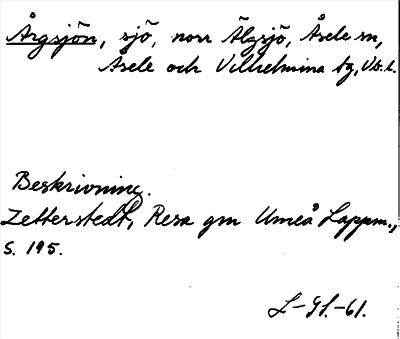 Årgsjön, sjö, norr Älgsjö, Åsele sn,
Åsele och Vilhelmina tg, Vb. l.
Beskrivning.
Zetterstedt, Resa gm Umeå Lappm.,
S. 195.